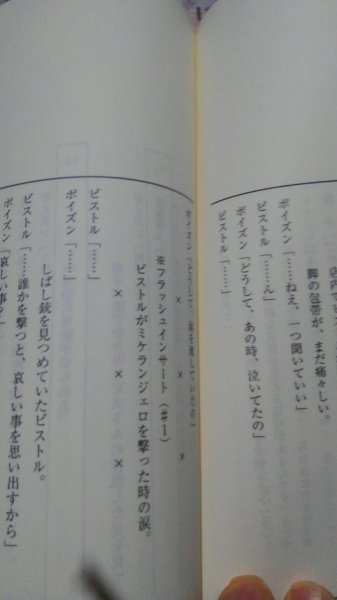 店内でピス
脚の包帯が、まだ痛々しい。
ポイズン「……ねえ、一つ聞いていい」
ピストル「……ん」
ポイズン「どうして、あの時、泣いてたの」
ピストル「……」
ポイズン「どうして、涙を流していたの」
× × ×
※フラッシュインサート（＃１）
ピストルがミケランジェロを撃った時の涙。
× × ×
ピストル「……」
ポイズン「……」
しばし銃を見つめていたピストル。
ピストル「……誰かを撃つと、哀しい事を思い出すから」
ポイズン「哀しい事？」